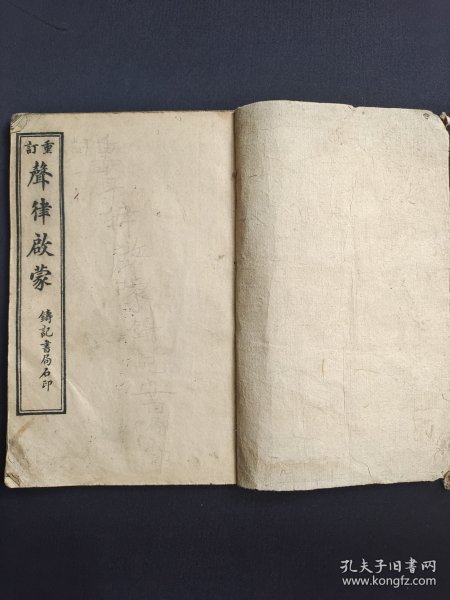 重訂
聲律啟蒙
鑄記書局石印
孔夫子旧书网
www.kongfz.com